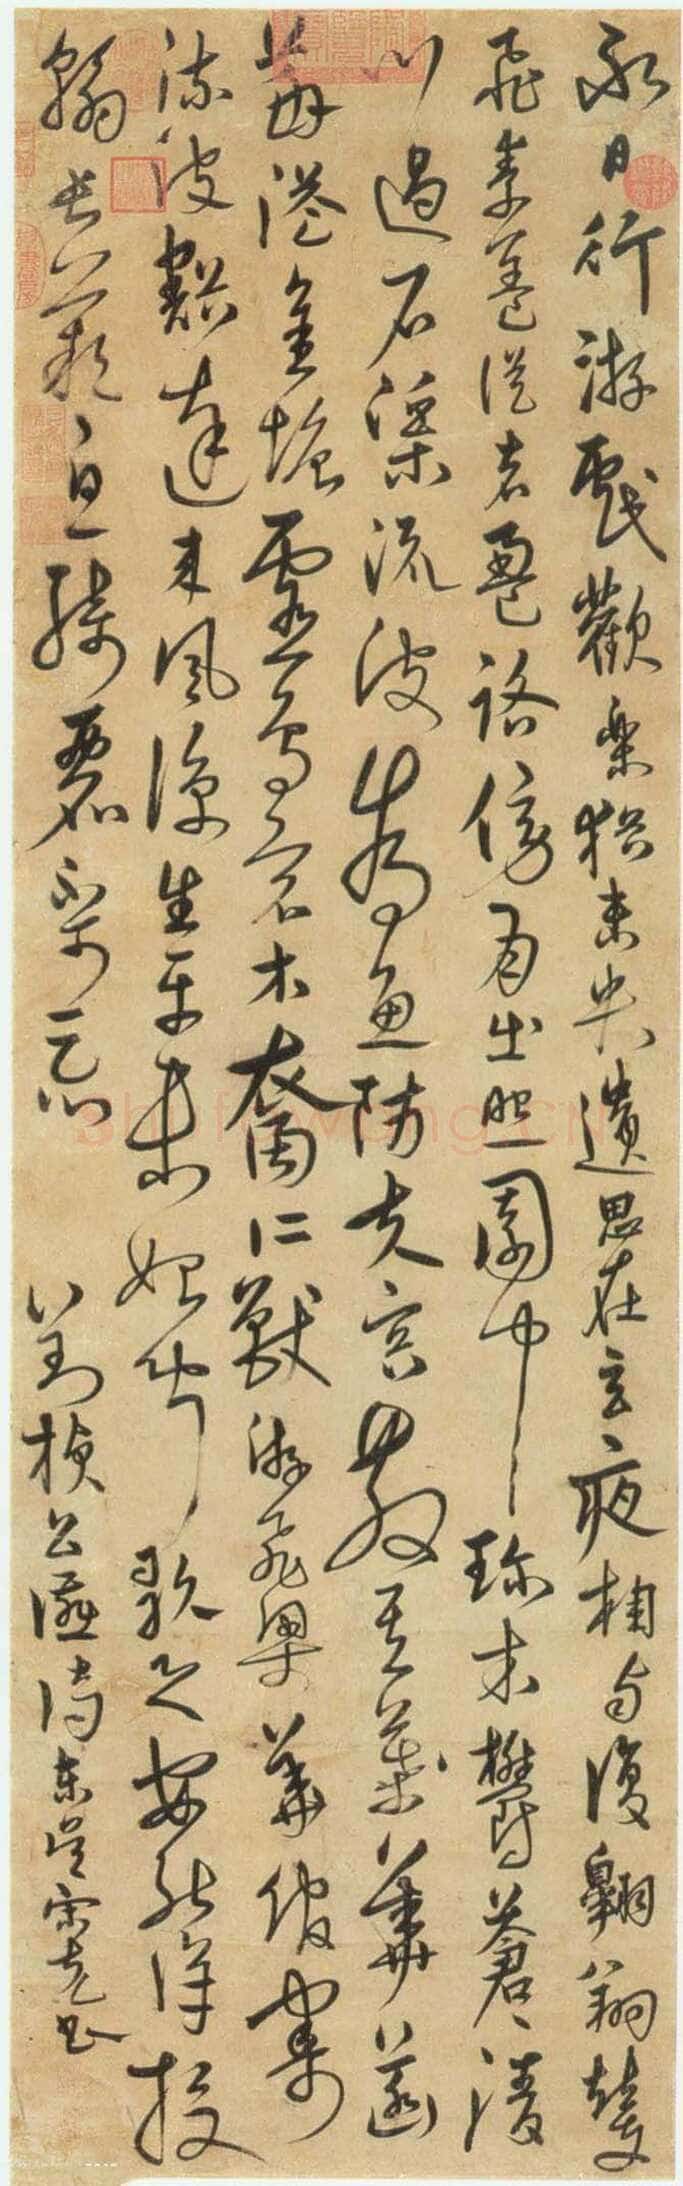 永日行游戲歡樂猶未央遺思在玄夜相與復翱翔輦車
飛素蓋從者盈路傍月出照園中珍木鬱蒼〻清
川過石渠流波為魚防夫容散其華菡
萏溢金塘靈鳥宿水裔仁獸游飛梁華館寄
流波豁達來風涼生平未始聞歌之安能詳投
翰長歎息綺麗不可忘 劉楨公讌詩東吳宋克書